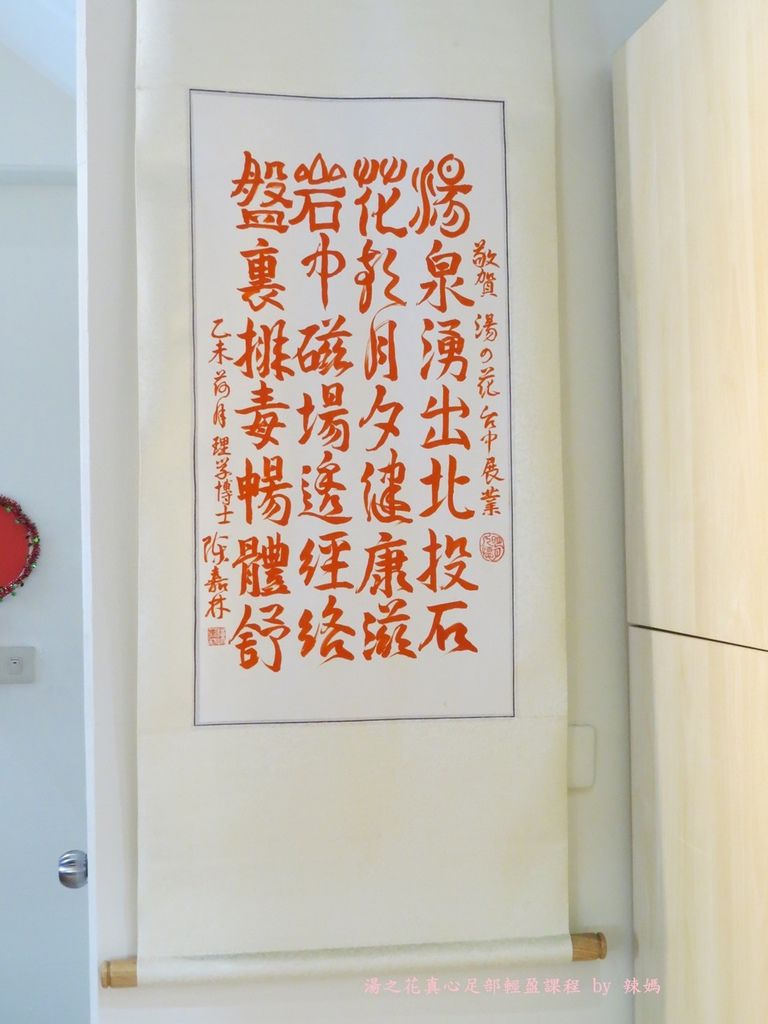 敬賀 湯の花台中展業
湯泉湧出北投石
花朝月夕健康滋
岩巾磁場透經絡
盤裏排毒暢體舒
乙未荷月 理学博士 嘉林
湯之花真心足部輕盈課程 by 辣媽